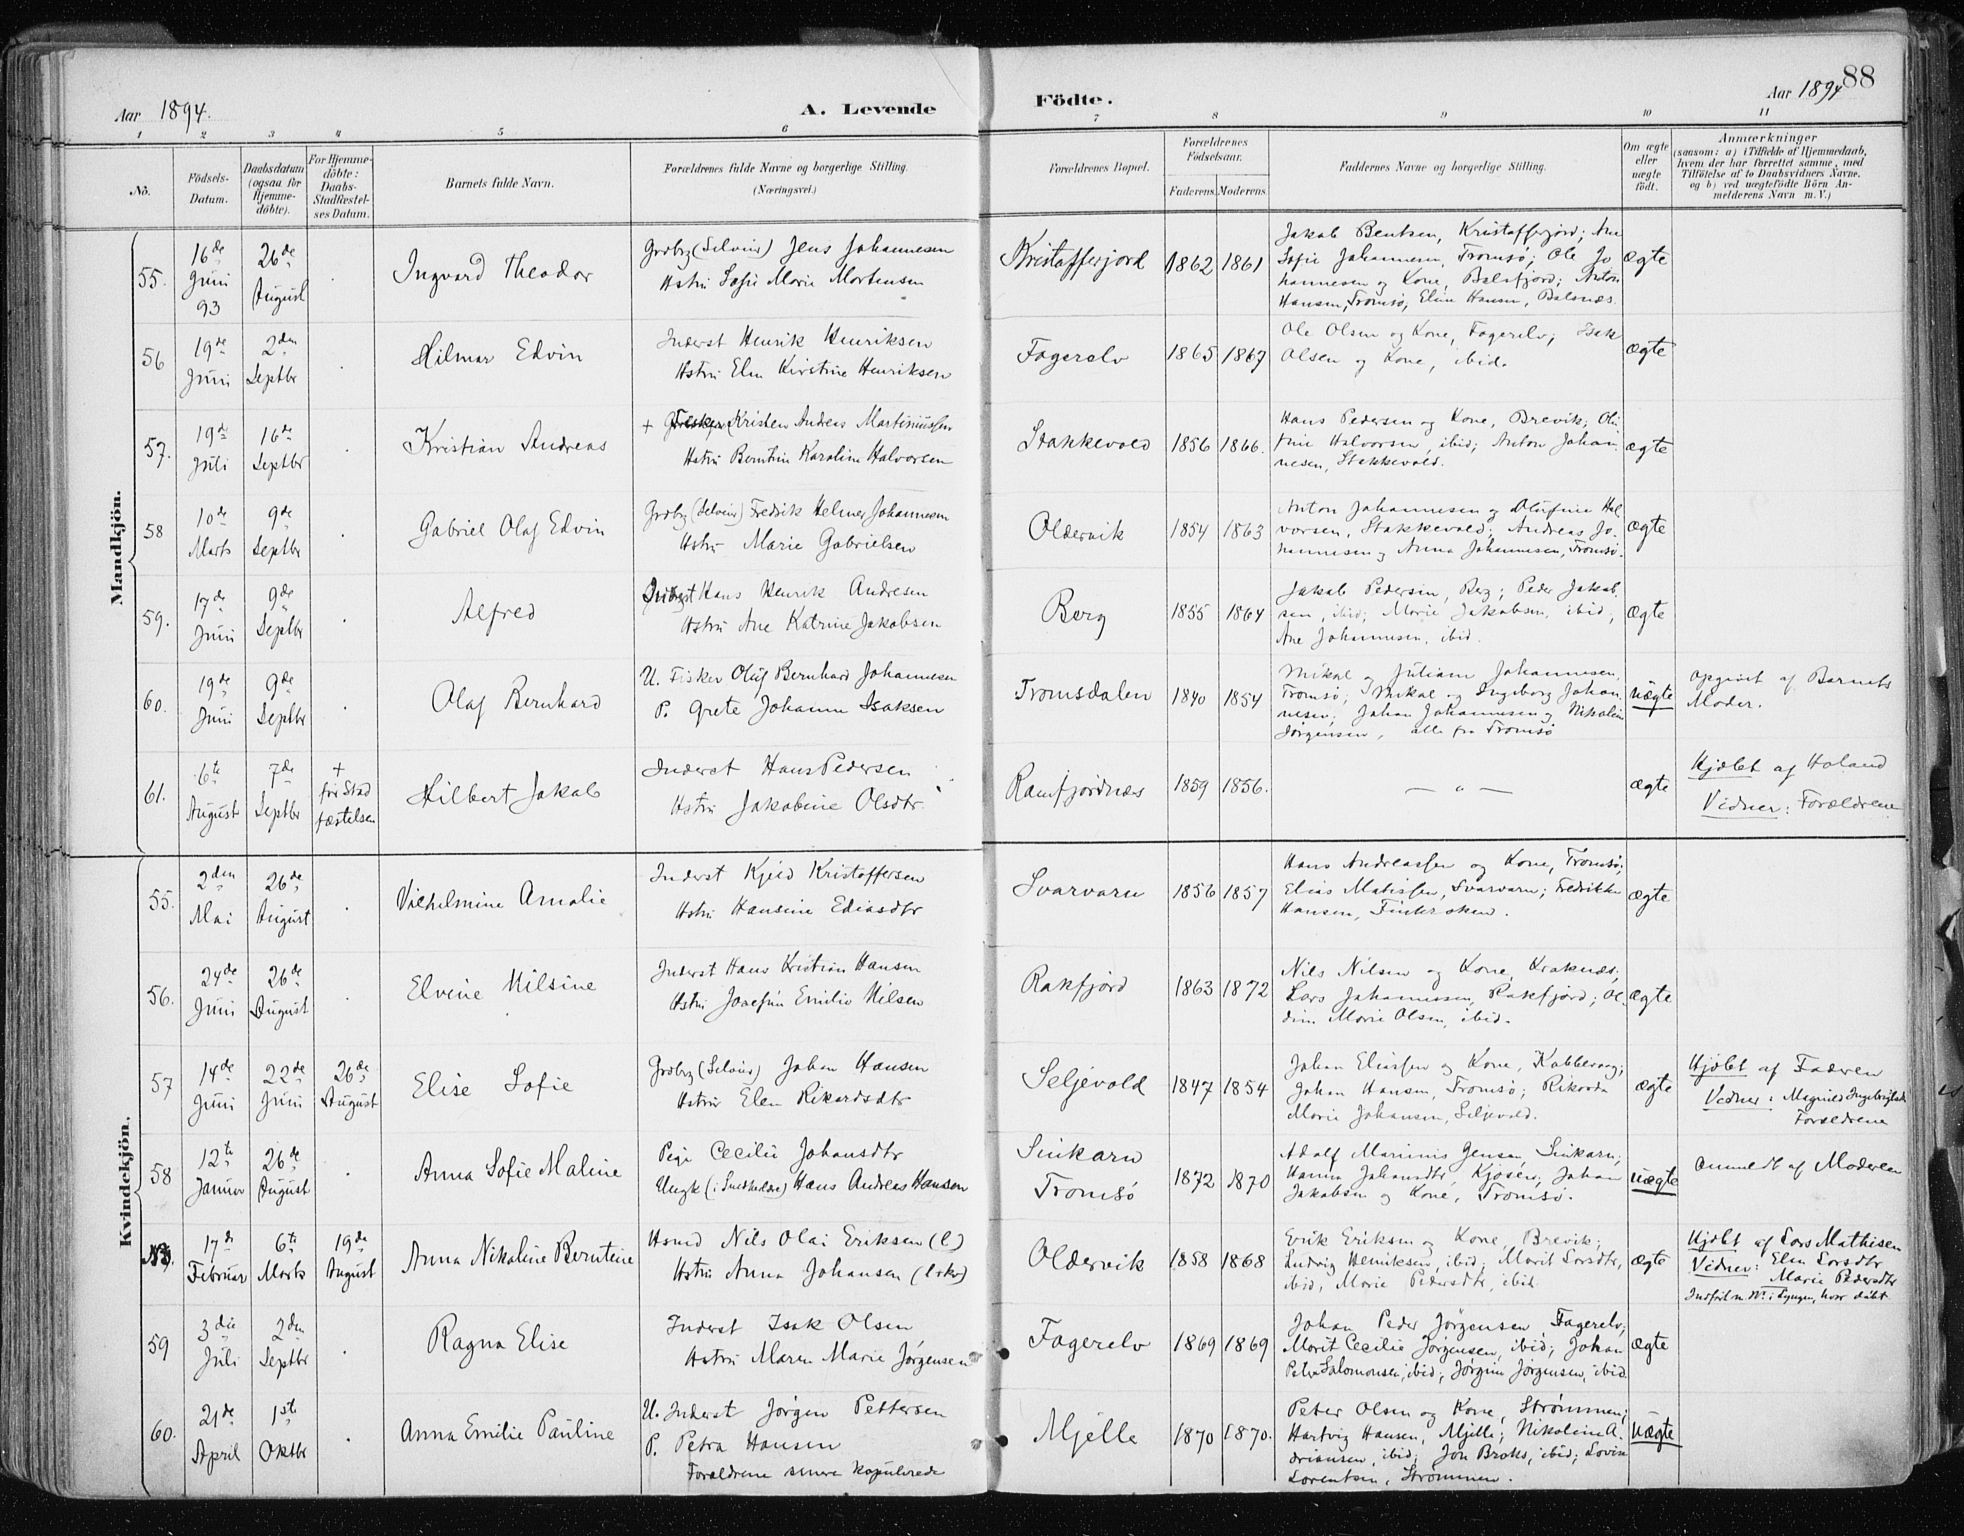 88
Aar 1894.
A. Levende
Födte.
Aar 1894
1 2 3 4 5 6 7 8 9 10 11
No.
Födsels-
Datum.
Daabsdatum
(ogsaa for
Hjemme-
döbte).
For Hjemme-
döbte:
Daabs-
Stadfæstel-
ses Datum.
Barnets fulde Navn.
Forældrenes fulde Navne og borgerlige Stilling.
(Næringsvei.)
Forældrenes Bopæl.
Forældrenes
Födselsaar.
Faderens. Moderens.
Faddernes Navne og borgerlige Stilling.
Om ægte
eller
uægte
födt.
Anmærkninger
(saasom: a) i Tilfælde af Hjemmedaab,
hvem der har forrettet samme, med
Tilföielse af to Daabsvidners Navne,
og b) ved uægtefödte Börn An-
melderens Navn m.V.)
Mandkjön.
55.
16de
Juni
93
26de
August
Ingvard Theodor
Grdbg (Selveier) Jens Johannesen
Hstru Sofie Marie Mortensen
Kristofferjord
1862 1861
Jakob Bentsen, Kristofferjord; Ane
Sofie Johannesen, Tromsø; Ole Jo
hannesen og Kone, Balsfjord; Anton
Hansen, Tromsø, Eline Hansen, Balsnæs.
ægte
56
19de
Juni
2den
Septbr
Hilmar Edvin
Inderst Henrik Henriksen
Hstru Elen Kirstine Henriksen
Fagerelv
1865 1867
Ole Olsen og Kone, Fagerelv; Isak
Olsen og Kone, ibid.
ægte
57.
19de
Juli
16de
Septbr
Kristian Andreas
+ Kristen Andreas Martinussen
Hstru Berntine Karoline Halvorsen
Stakkevold
1856 1866.
Hans Pedersen og Kone, Brevik; Olu
fine Halvorsen, ibid; Anton Johan
nesen, Stakkevold.
ægte
58
10de
Marts
9de
Septbr
Gabriel Olaf Edvin
Grdbg (Selveier) Fredrik Helmer Johannesen
Hstru Marie Gabrielsen
Oldervik
1854 1863
Anton Johannesen og Olufine Hal
vorsen, Stakkevold; Andreas Jo-
hannesen og Anna Johannesen, Tromsø.
ægte
59.
17de
Juni
9de
Septbr
Alfred
Inderst Hans Henrik Andresen
Hstru Ane Katrine Jakobsen
Berg
1855 1864
Jakob Pedersen, Berg; Peder Jakob
sen, ibid; Marie Jakobsen, ibid;
Ane Johannesen, ibid.
ægte
60.
19de
Juni
9de
Septbr
Olaf Bernhard
U. Fisker Oluf Bernhard Johannesen
P. Grete Johanne Isaksen
Tromsdalen
1840 1854
Mikal og Juliam Johannesen,
Tromsø; Mikal og Ingeborg Johan
nesen; Johan Johannesen og Nikoline
Jørgensen, alle fra Tromsø
uægte
opgivet af Barnets
Moder.
61.
6te
August
7de
Septbr
+
før Stad
fæstelsen
Hilbert Jakob
Inderst Hans Pedersen
Hstru Jakobine Olsdtr
Ramfjordnæs
1859 1856.
— " —
ægte
Hjdbt af Holand
Vidner: Forældrene
Kvindekjön.
55.
2den
Mai
26de
August
Vilhelmine Amalie
Inderst Kjeld Kristoffersen
Hstru Hansine Eliasdtr
Svarvarn
1856 1857
Hans Andreassen og Kone, Tromsø;
Elias Matissen, Svarvarn; Fredrikke
Hansen, Finkroken.
ægte
56.
24de
Juni
26de
August
Elvine Nilsine
Inderst Hans Kristian Hansen
Hstru Josefine Emilie Nilsen
Rakfjord
1863 1872
Nils Nilsen og Kone, Kraknæs;
Lars Johannessen, Rakfjord; Ol-
dine Marie Olsen, ibid.
ægte
57
14de
Juni
22de
Juni
26de
August
Elise Sofie
Grdbg (Selveier) Johan Hansen
Hstru Elen Rikardsdtr
Seljevold
1847 1854
Johan Eliassen og Kone, Kobbevaag;
Johan Hansen, Tromsø; Rikarda
Marie Johansen, Seljevold.
ægte
Hjdbt af Faderen
Vidner: Magnild Ingebrigtsd
Forældrene
58
12te
Januar
26de
August
Anna Sofie Maline
Pige Cecilie Johansdtr
Ungk (i Snedkerlære) Hans Andreas Hansen
Sinkarn
Tromsø
1872 1870
Adolf Marinius Jensen Sinkarn;
Hanna Johansdtr, Kjosen, Johan
Jakobsen og Kone, Tromsø.
uægte
Anmeldt af Moderen
17de
Februar
6te
Marts
19de
August
Anna Nikoline Berntine
Hsmd Nils Olai Eriksen (l)
Hstru Anna Johansen
Oldervik
1858 1868
Erik Eriksen og Kone, Brevik;
Ludvig Henriksen, ibid; Marit Larsdtr,
ibid, Marie Pedersdtr, ibid.
ægte
Hjdbt af Lars Mathisen
Vidner: Elen Larsdtr
Marie Pedersdtr
Indført u. No i Lyngen, hvor døbt
59
3die
Juli
2den
Septbr
Ragna Elise
Inderst Isak Olsen
Hstru Maren Marie Jørgensen
Fagerelv
1869 1869
Johan Peder Jørgensen, Fagerelv;
Marit Cecilie Jørgensen, ibid; Johan
Petter Salomonsen, ibid; Jørgine Jørgensen, ibid
ægte
60.
21de
April
1ste
Oktbr
Anna Emilie Pauline
U. Inderst Jørgen Pettersen
P. Petra Hansen
Forældrene senere kopulerede
Mjelle
1870 1870.
Peter Olsen og Kone, Strømmen;
Hartvig Hansen, Mjelle; Nikoline A-
driansen, ibid; Jon Broks, ibid; Lovise
Lorentsen, Strømmen.
uægte